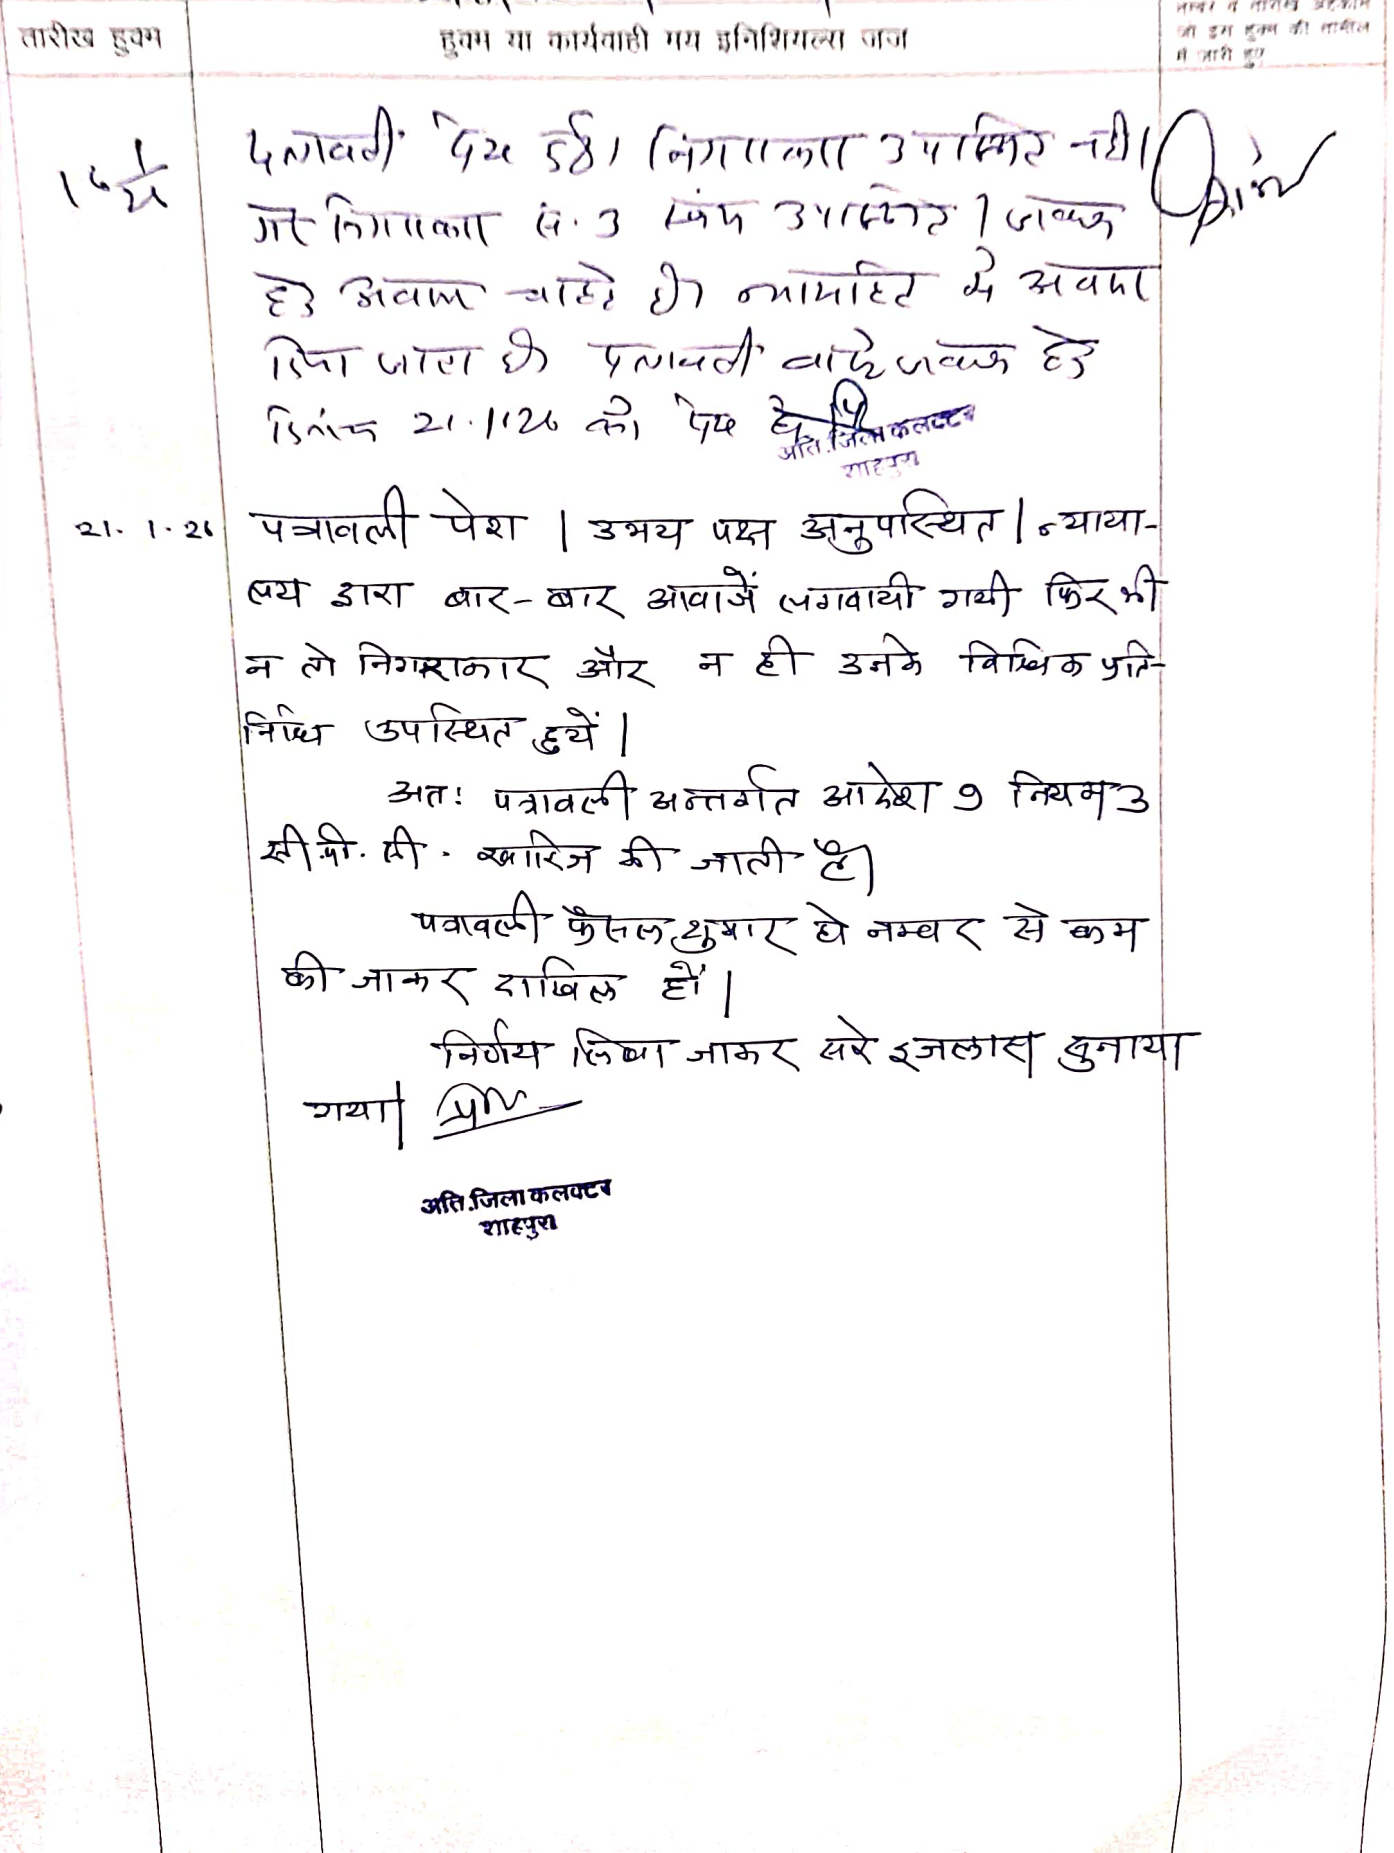 तारीख हुक्म
हुक्म या कार्यवाही मय इनिशियल्स जज
नम्बर व तारीख अहकाम
जो इस हुक्म की तामील
में जारी हुए
पत्रावली पेश हुई। निगराकार उपस्थित नही।
गैर निगराकार सं. 3 स्वयं उपस्थित। जवाब
हेतु अवसर चाहते है। न्यायहित मे अवसर
दिया जाता है। पत्रावली वास्ते जवाब हेतु
दिनांक 21.1.26 को पेश हो
अति.जिला कलक्टर
शाहपुरा
21.1.26 पत्रावली पेश। उभय पक्ष अनुपस्थित। न्याया-
लय द्वारा बार-बार आवाजें लगवायी गयी फिर भी
न तो निगराकार और न ही उनके विधिक प्रति-
निधि उपस्थित हुयें।
अत: पत्रावली अन्तर्गत आदेश 9 नियम 3
सी.पी.सी. खारिज की जाती है।
पत्रावली फैसल शुमार हो नम्बर से कम
की जाकर दाखिल हों।
निर्णय लिखा जाकर सरे इजलास सुनाया
गया।
अति.जिला कलक्टर
शाहपुरा